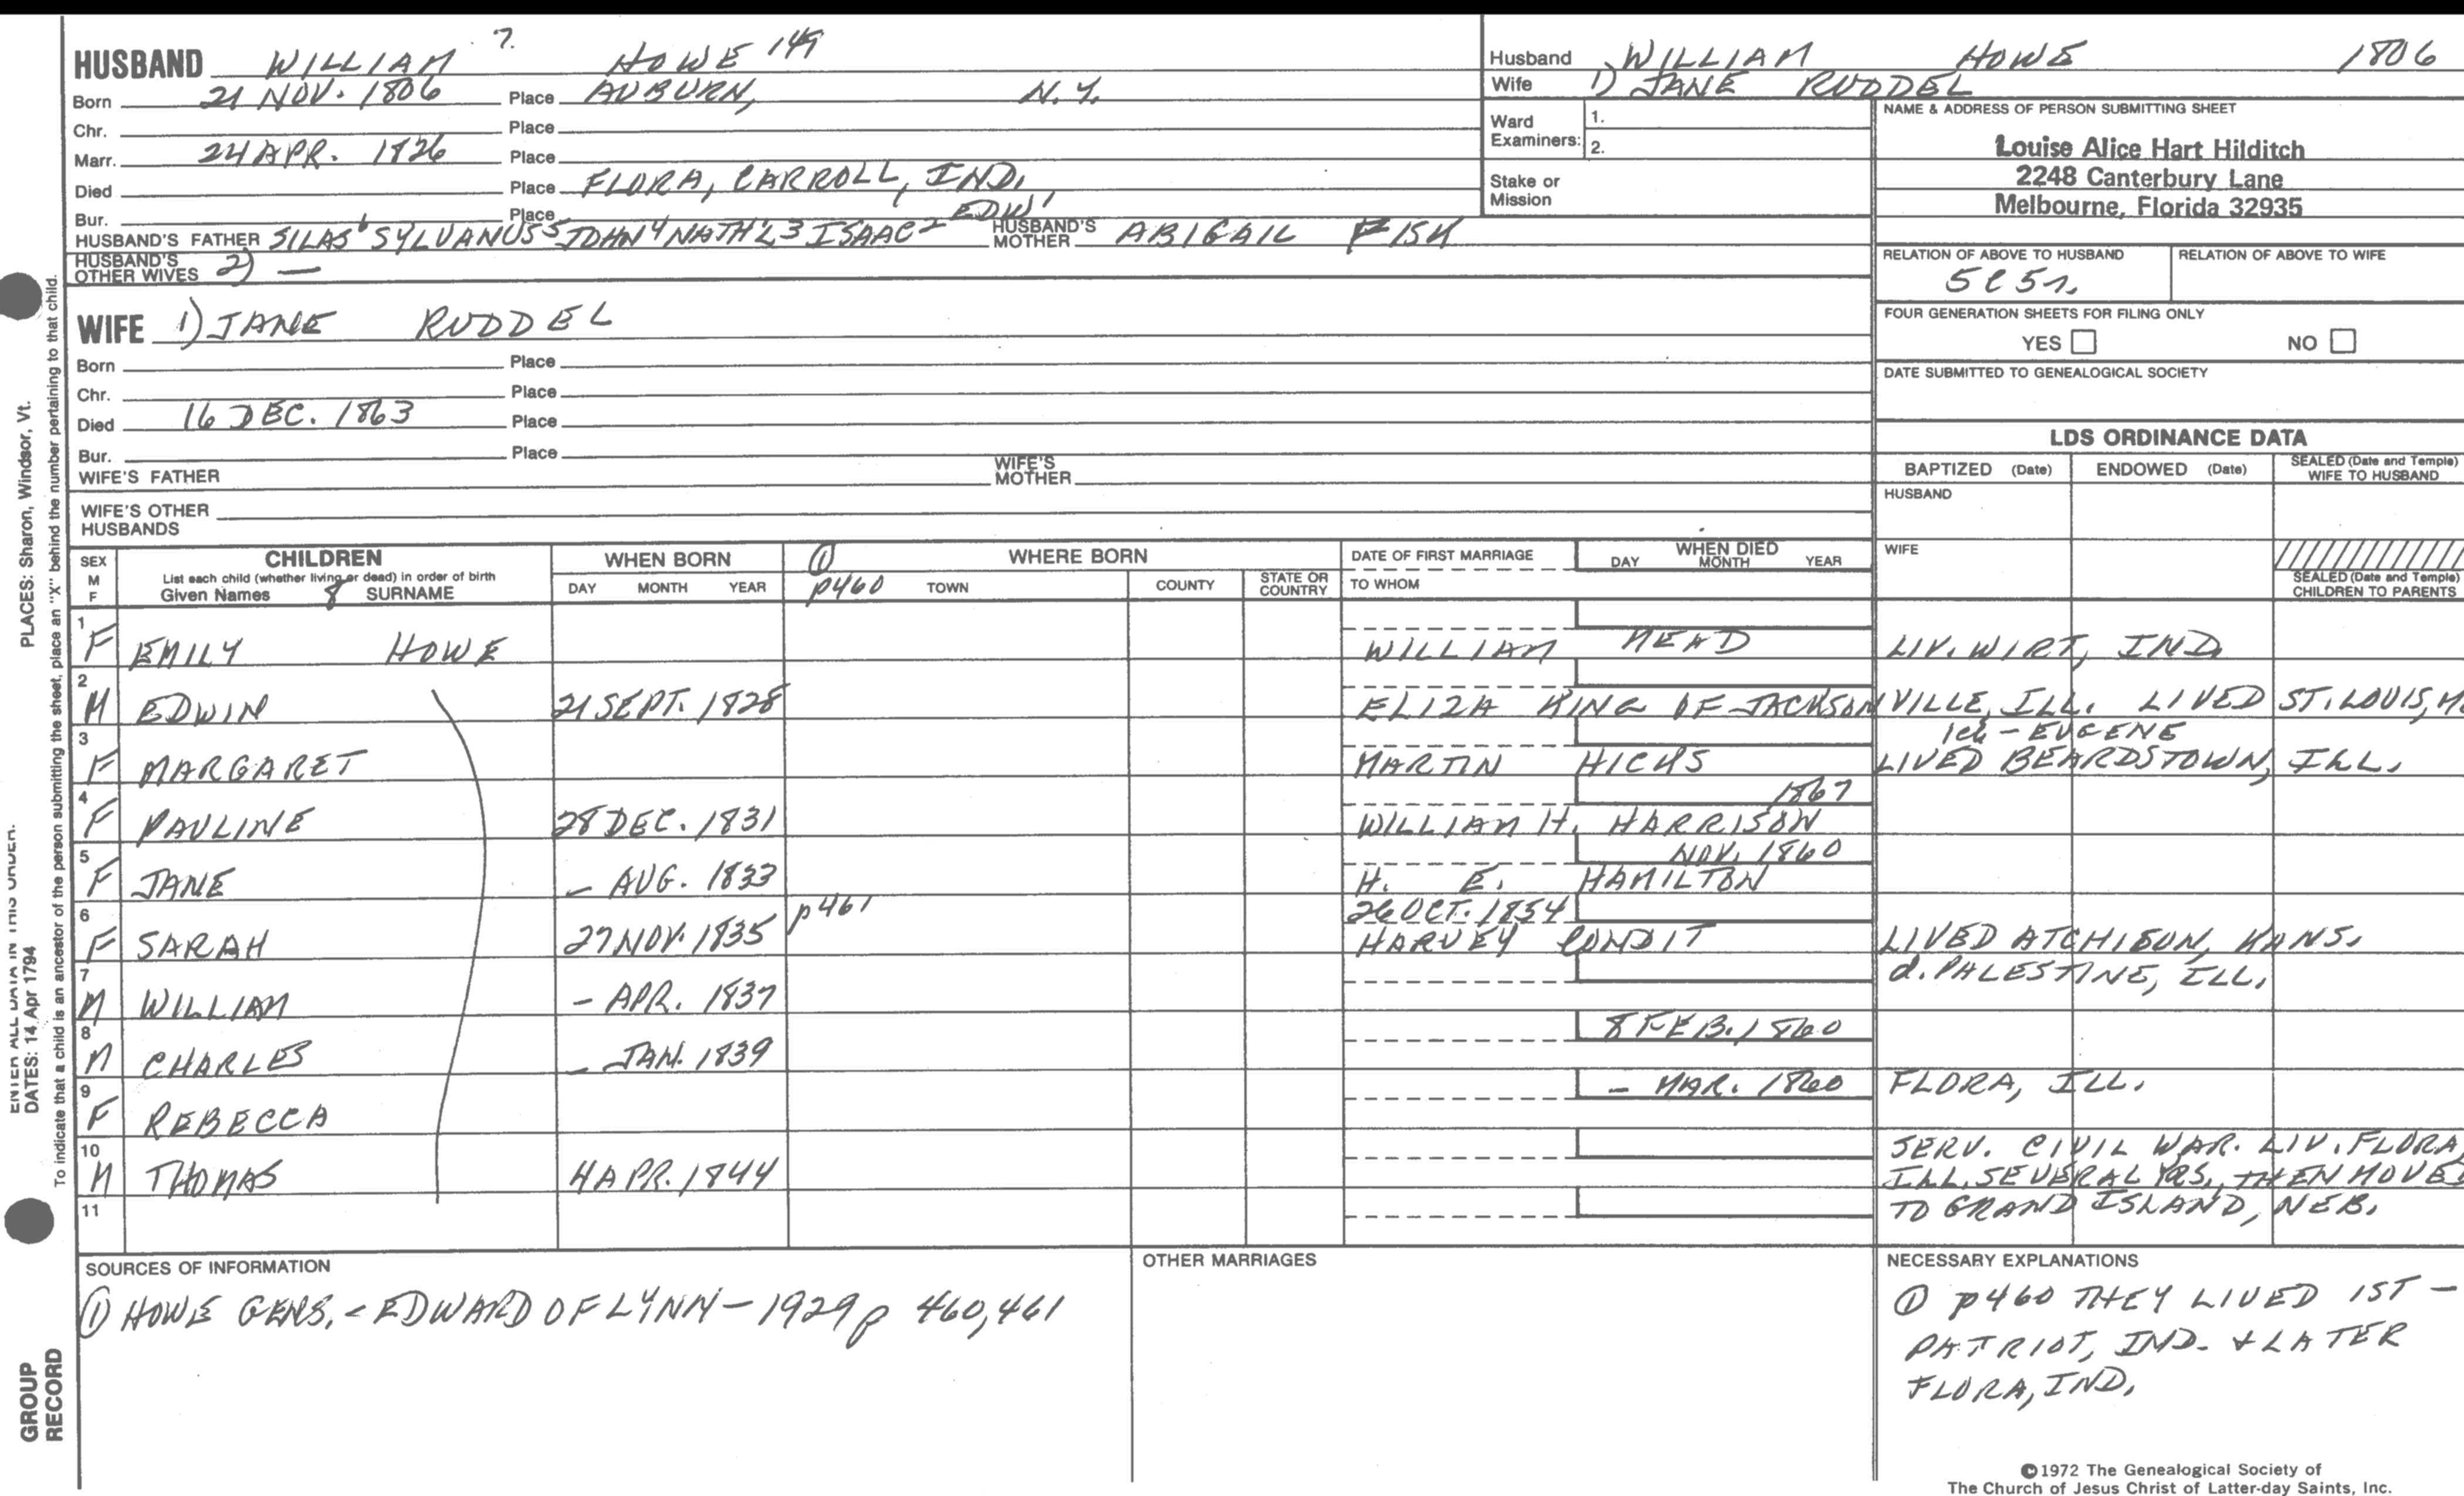 HUSBAND WILLIAM 7. HOWE 149
Born 21 NOV. 1806 Place AUBURN, N.Y.
Chr. Place
Marr. 24 APR. 1826 Place
Died Place FLORA, CARROLL, IND.
Bur. Place
HUSBAND'S FATHER SILAS6 SYLVANUS5 JOHN4 NATH'L3 ISAAC2 EDW1 HUSBAND'S MOTHER ABIGAIL FISK
HUSBAND'S OTHER WIVES 2) —
Husband WILLIAM HOWE 1806
Wife 1) JANE RUDDEL
Ward Examiners: 1.
2.
Stake or Mission
NAME & ADDRESS OF PERSON SUBMITTING SHEET
Louise Alice Hart Hilditch
2248 Canterbury Lane
Melbourne, Florida 32935
RELATION OF ABOVE TO HUSBAND RELATION OF ABOVE TO WIFE
5C5r.
FOUR GENERATION SHEETS FOR FILING ONLY
YES NO
DATE SUBMITTED TO GENEALOGICAL SOCIETY
WIFE 1) JANE RUDDEL
Born Place
Chr. Place
Died 16 DEC. 1863 Place
Bur. Place
WIFE'S FATHER WIFE'S MOTHER
WIFE'S OTHER HUSBANDS
LDS ORDINANCE DATA
BAPTIZED (Date) ENDOWED (Date) SEALED (Date and Temple) WIFE TO HUSBAND
HUSBAND
WIFE
SEALED (Date and Temple) CHILDREN TO PARENTS
SEX M F CHILDREN WHEN BORN ① WHERE BORN DATE OF FIRST MARRIAGE WHEN DIED
List each child (whether living or dead) in order of birth
Given Names 8 SURNAME DAY MONTH YEAR p460 TOWN COUNTY STATE OR COUNTRY TO WHOM DAY MONTH YEAR
1 F EMILY HOWE WILLIAM MEAD LIV. WIRT, IND.
2 M EDWIN 21 SEPT. 1828 ELIZA KING OF JACKSONVILLE, ILL. LIVED ST. LOUIS, MO
1ch - EUGENE
3 F MARGARET MARTIN HICKS LIVED BEARDSTOWN, ILL.
1867
4 F PAULINE 28 DEC. 1831 WILLIAM H. HARRISON
NOV. 1860
5 F JANE - AUG. 1833 H. E. HAMILTON
p461 26 OCT. 1854
6 F SARAH 27 NOV. 1835 HARVEY CONDIT LIVED ATCHISON, KANS.
d. PALESTINE, ILL.
7 M WILLIAM - APR. 1837
8 FEB. 1860
8 M CHARLES - JAN. 1839
- MAR. 1860 FLORA, ILL.
9 F REBECCA
SERV. CIVIL WAR. LIV. FLORA,
10 M THOMAS 4 APR. 1844 ILL. SEVERAL YRS., THEN MOVED
11 TO GRAND ISLAND, NEB.
SOURCES OF INFORMATION
① HOWE GENS. - EDWARD OF LYNN - 1929 p 460,461
OTHER MARRIAGES
NECESSARY EXPLANATIONS
① p460 THEY LIVED 1ST -
PATRIOT, IND. & LATER
FLORA, IND.
©1972 The Genealogical Society of
The Church of Jesus Christ of Latter-day Saints, Inc.
ENTER ALL DATA IN THIS ORDER.
DATES: 14 Apr 1794 PLACES: Sharon, Windsor, Vt.
To indicate that a child is an ancestor of the person submitting the sheet, place an "X" behind the number pertaining to that child.
GROUP
RECORD